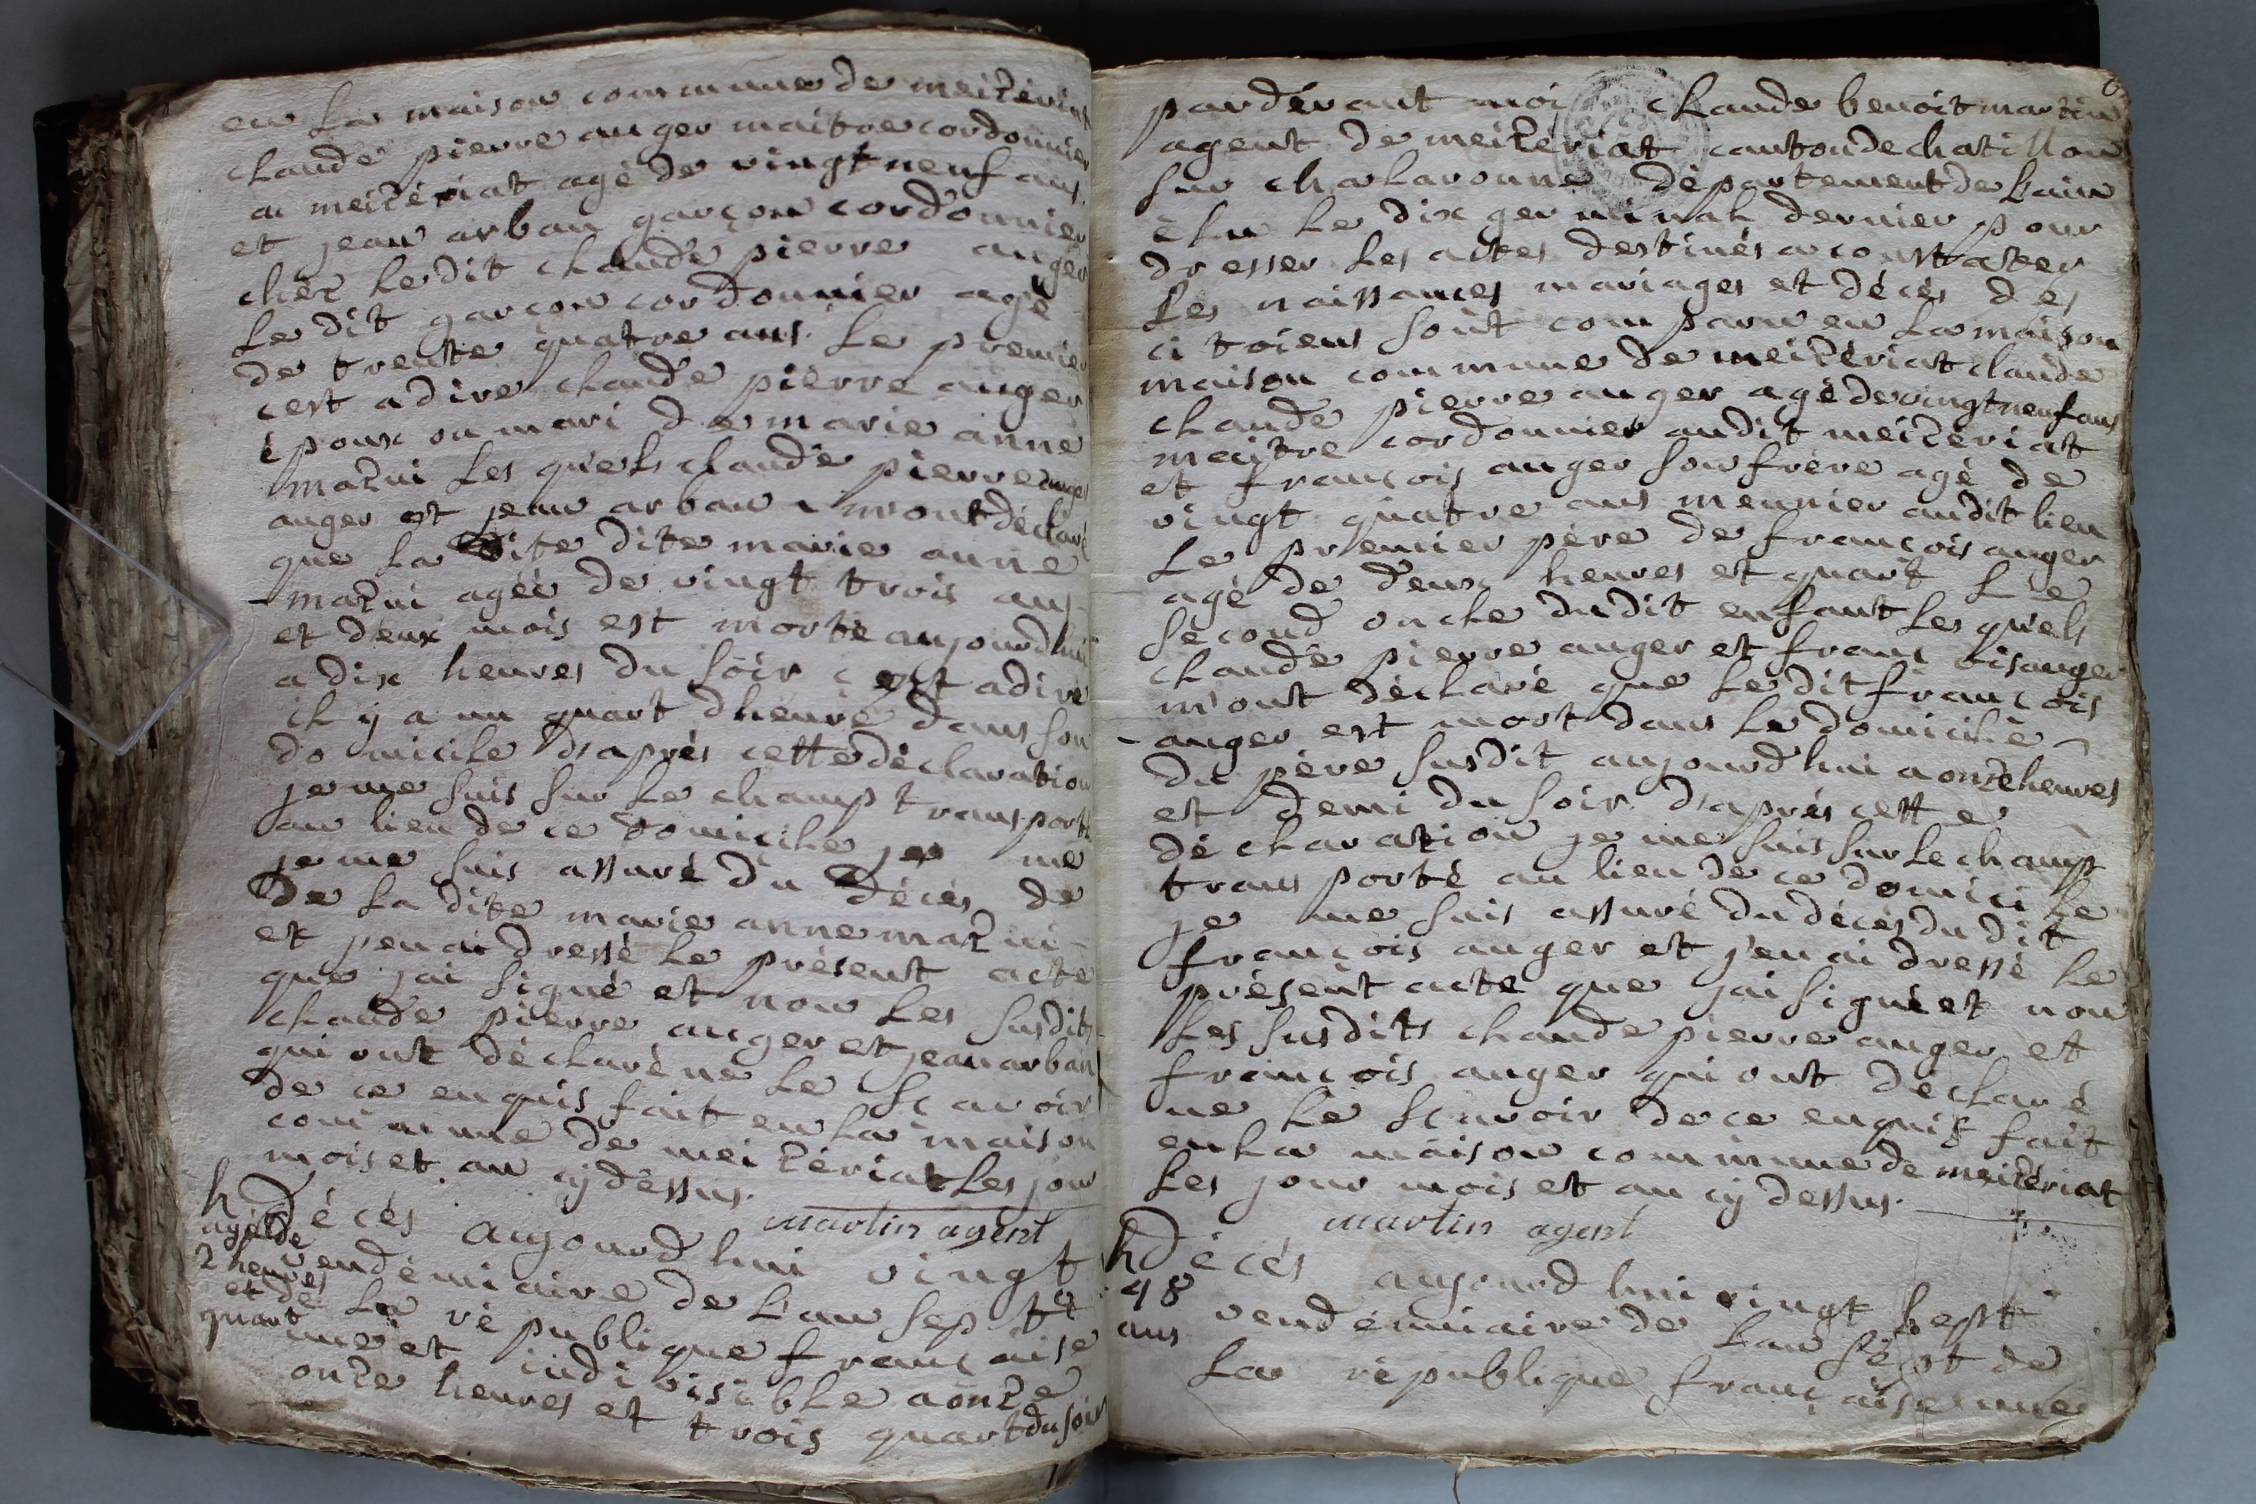 en la maison commune de meizériat
claude pierre anger maitre cordonnier
a meizériat agé de vingt neuf ans
et jean arban garçon cordonnier
chéz ledit claude pierre anger
le dit garçon cordonnier agé
de trente quatre ans. le premier
cest a dire claude pierre anger
époux ou mari de marie anne
mazui les quels claude pierre anger
anger et jean arban mont déclaré
que la dite dite marie anne
mazui agée de vingt trois ans
et deux mois est morte aujourdhui
a dix heures du soir cest adire
il y a un quart dheure dans son
domicile d'aprés cette déclaration
je me suis sur le champ transporté
au lieu de ce domicile je me
je me suis assuré du décés de
de la dite marie anne mazui
et jen ai dressé le présent acte
que jai signé et non les susdits
claude pierre anger et jean arban
qui ont déclaré ne le scavoir
de ce enquis fait en la maison
commune de meizériat les jour
mois et an cy dessus.
martin agent
h
agé de
2 heures
et de
quart
Décés aujourd hui vingt
vendémiaire de l'an sept de
la république française
une et indivisible a onze
onze heures et trois quart du soir
pardévant moi claude benoit martin
agent de meizériat canton de chatillon
sur chalaronne département de lain
élu le dix germinal dernier pour
dresser les actes destinés a constater
les naissances mariages et décés des
citoiens sont comparu en la maison
maison commune de meizériat claude
claude pierre anger agé de vingt neuf ans
maitre cordonnier audit meizériat
et françois anger son frére agé de
vingt quatre ans meunier audit lieu
le premier pére de françois anger
agé de deux heures et quart le
second oncle dudit enfant les quels
claude pierre anger et françois anger
m'ont déclaré que ledit françois
anger est mort dans le domicile
du pére susdit aujourdhui a onze heures
et demi du soir d'aprés cette
déclaration je me suis sur le champ
transporté au lieu de ce domicile
je me suis assuré du décés dudit
françois anger et j'en ai dressé le
présent acte que jai signé et non
les susdits claude pierre anger et
françois anger qui ont déclaré
ne le scavoir de ce enquis fait
en la maison commune de meizériat
les jour mois et an cy dessus.
martin agent
h
48
ans
Décés aujourd hui vingt sept
vendémiaire de l'an sept de
la république française une